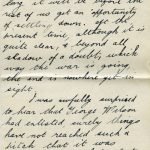 long it will be before the
rest of us get an opportunity
of settling down. At the
present time, although it is
quite clear, & beyond all
shadow of a doubt, which
way the war is going,
the end is nowhere yet in
sight.
I was awfully surprised
to hear that George Wilson
had enlisted surely things
have not reached such a
pitch that it was